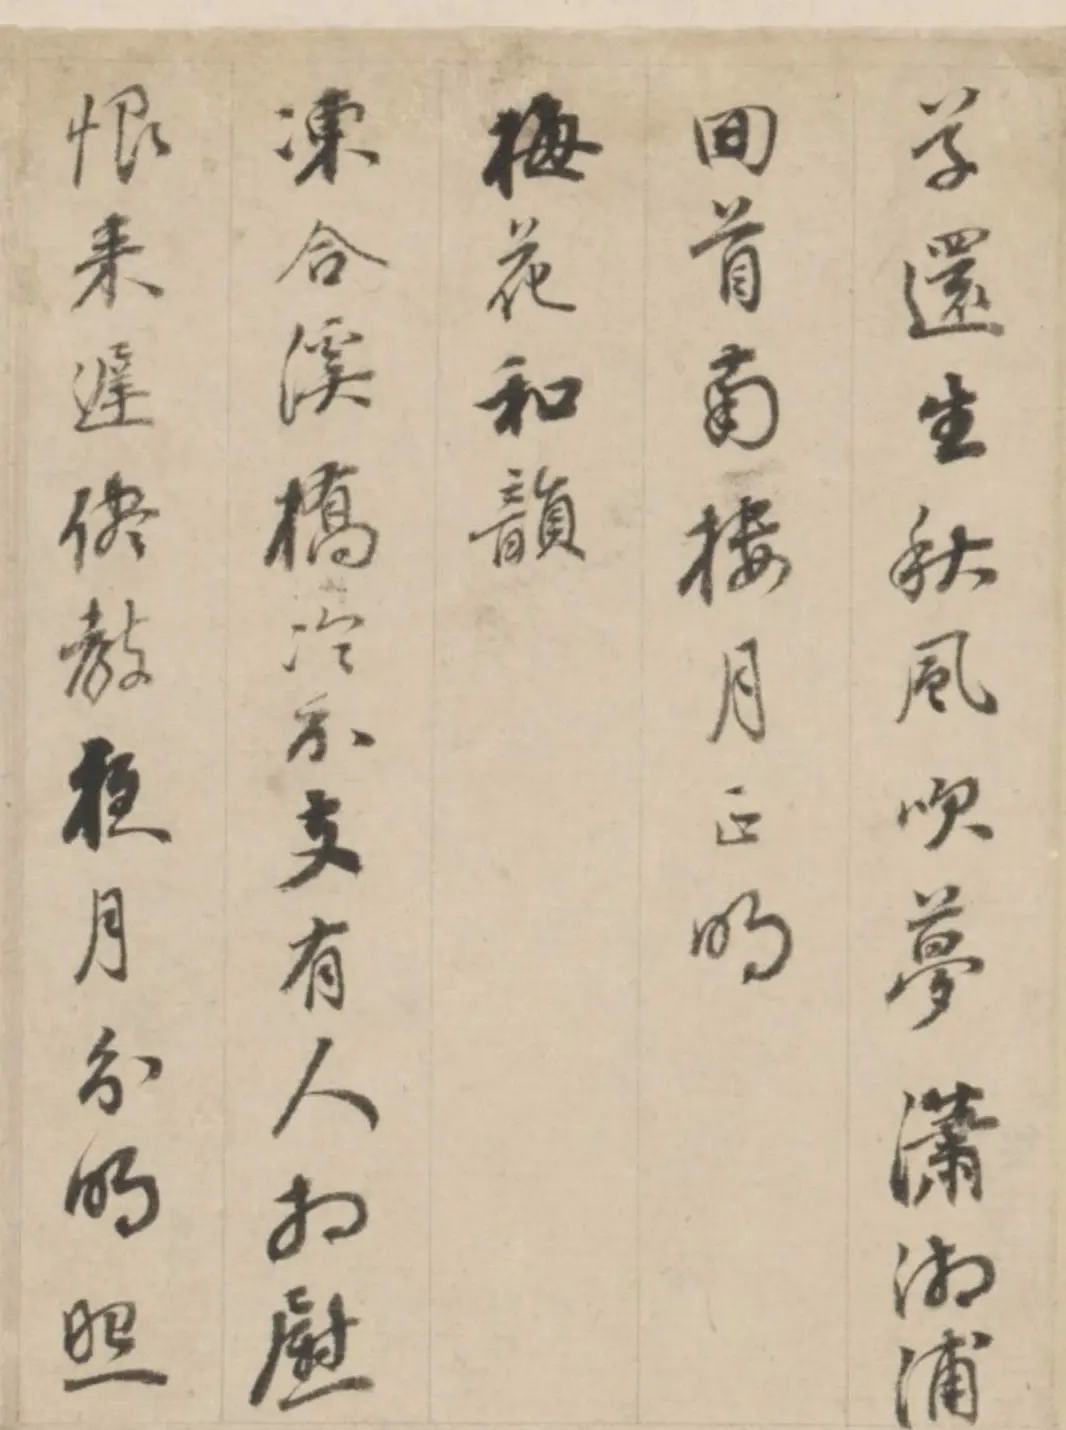 草還生秋風吹夢瀟湘浦
回首南樓月正明
梅花和韻
凍合溪橋冷不支有人相慰
恨来遲儘教月分明照